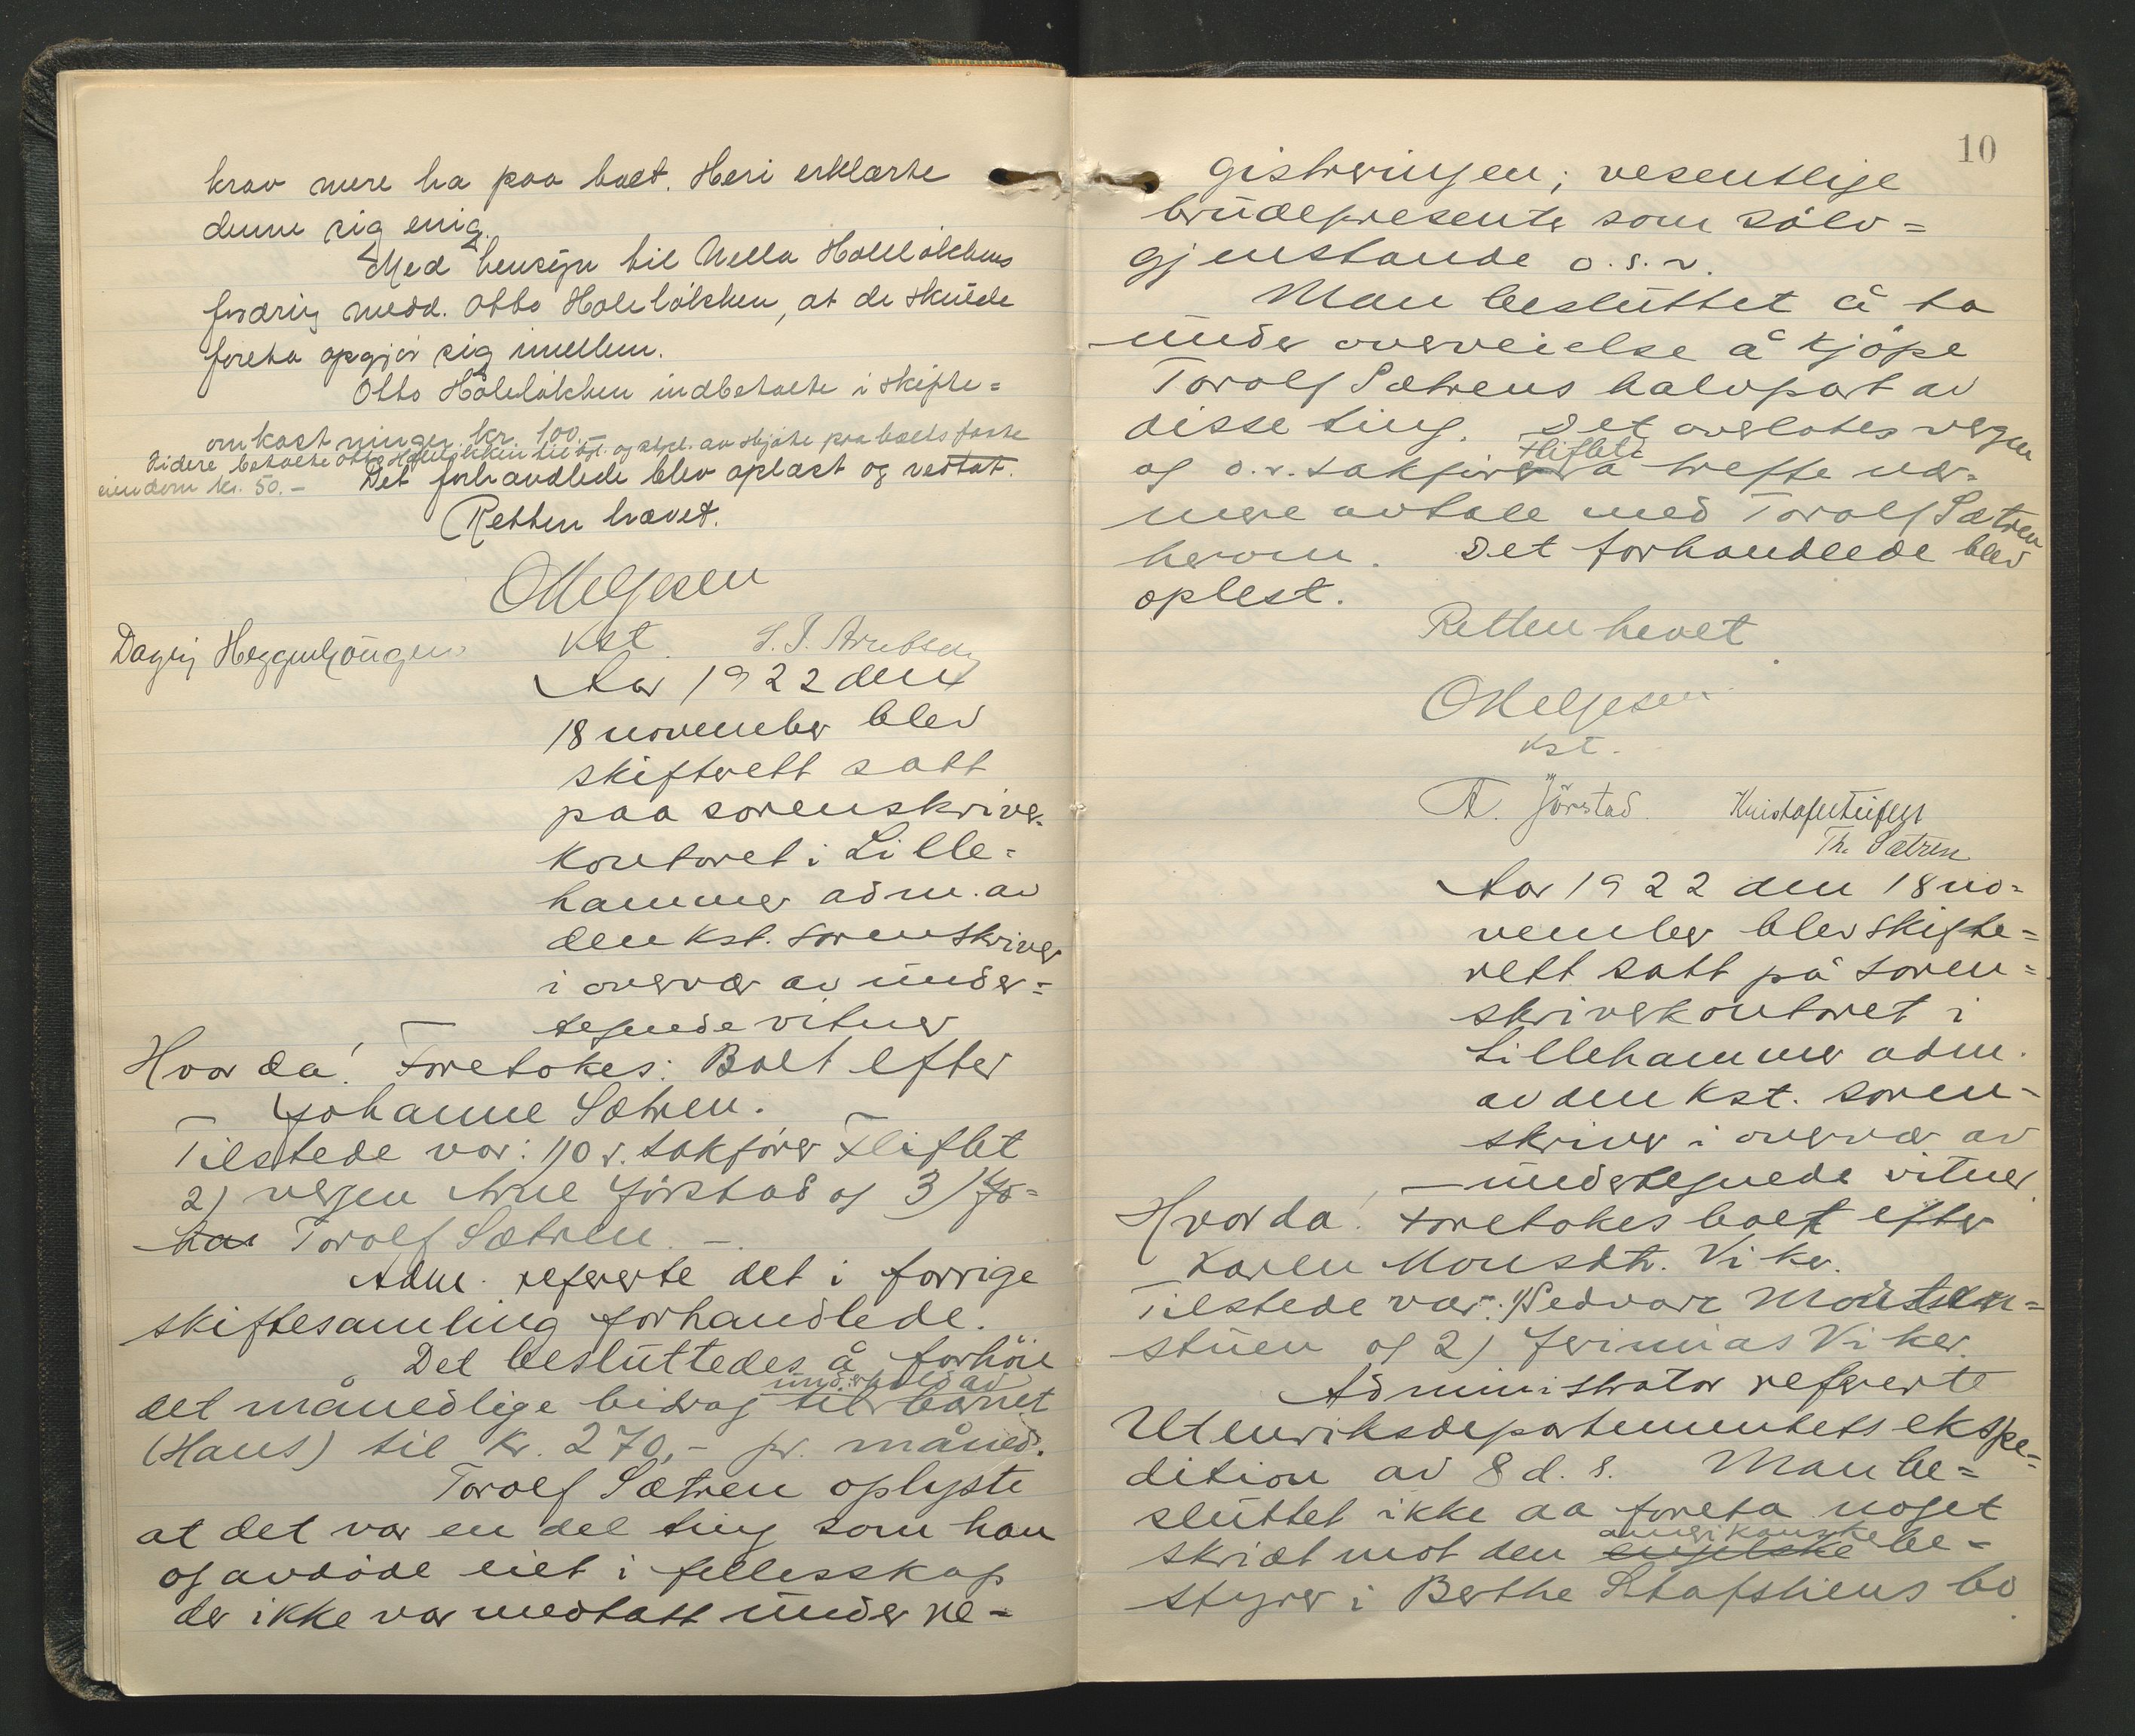 krav mere ha paa boet. Heri erklærte
denne sig enig.
Med hensyn til Nella Holelökkens
fordring medd. Otto Holelökken, at de skulde
foreta opgjör sig imellem.
Otto Holelökken indbetalte i skifte=
omkostninger kr. 100.-
Videre betalte Otto Holelökken til tgl. og stpl. av skjöte paa boets faste
eiendom kr. 50.-
Det forhandlede blev oplæst og vedtat.
Retten hævet.
O Helgesen
Kst.
Aar 1922 den
18 november blev
skifterett satt
paa sorenskriver-
kontoret i Lille=
hammer adm. av
den kst. sorenskriver
i overvær av under=
tegnede vitner
Hvor da! Foretokes: Boet efter
Johanne Sætren.
Tilstede var: 1) o.r. sakförer Fliflet
2) vergen Arne Jörstad og 3) Jo=
han Torolf Sætren. -
Adm. refererte det i forrige
skiftesamling forhandlede.
Det besluttedes å forhöie
underhold av
det månedlige bidrag til barnet
(Hans) til kr. 270,- pr. måned.
Torolf Sætren oplyste
at det var en del ting som han
og avdöde eiet i fellesskap
der ikke var medtatt under re-
10
gistreringen; vesentlige
brudepresenter som sölv=
gjenstande o.s.v.
Man besluttet å ta
under overveielse å kjöpe
Torolf Sætrens halvpart av
disse ting. Det overlates vergen
Fliflet
og o.r. sakförer å treffe nær-
mere avtale med Torolf Sætren
herom. Det forhandlede blev
oplest.
Retten hevet
O Helgesen
kst.
A. Jörstad.
Th. Sætren
Aar 1922 den 18 no=
vember blev skifte=
rett satt på soren=
skriverkontoret i
Lillehammer adm.
av den kst. soren-
skriver i overvær av
undertegnede vitner
Hvor da! Foretokes boet efter
Karen Monsdtr. Viker.
Tilstede var: 1) Sedvarr=
stuen og 2) Jerimias Viker.
Administrator refererte
Utenriksdepartementets ekspe=
dition av 8 d. s. Man be=
sluttet ikke aa foreta noget
amerikanske
skridt mot den engelske be=
styrer i Berthe Stafsliens bo.